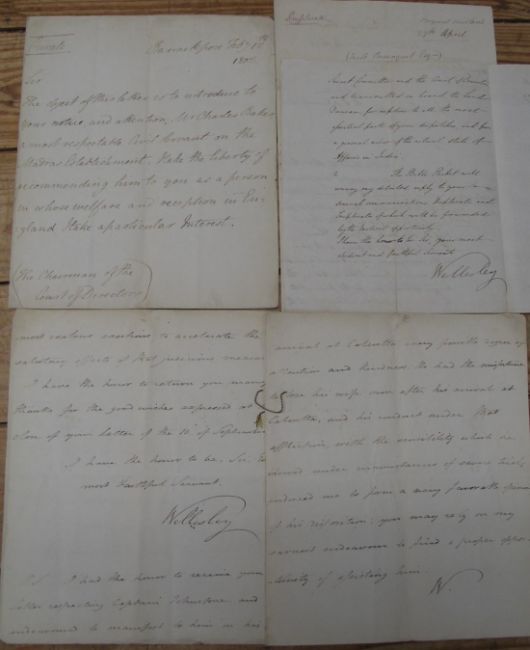 Private
Barrackpore Feb.
180
Sir
The object of this letter is to introduce to
your notice and attention, Mr Charles Baker
a most respectable Civil Servant on the
Madras Establishment. I take the liberty of
recommending him to you as a person
in whose welfare and reception in En-
gland I take a particular Interest.
(The Chairman of the
Court of Directors)
Duplicate
29th April
Secret Committee and the Court of Directors
and transmitted on board the Lord
Duncan for
all the most
parts of your dispatches, and for
a general view of the actual state of
Affairs in India.
The Packet will
carry my detailed reply to your
Duplicate and
Triplicate of which will be forwarded
by the earliest opportunity.
I have the honor to be Sir, your most
obedient and faithful Servant
Wellesley
most zealous exertions to accelerate the
salutary effects of that judicious measure
I have the honor to return you many
thanks for the good wishes expressed at
close of your letter of the 10th of September
I have the honor to be, Sir,
most Faithful Servant.
Wellesley
P.S. I had the honor to receive your
letter respecting Captain Johnstone and
endeavoured to manifest to him on his
arrival at Calcutta every possible degree of
attention and kindness. He had the misfortune
to lose his wife soon after his arrival at
Calcutta, and his conduct under that
affliction, with the sensibility which he
viewed under circumstances of severe trial,
induced me to form a very favorable opinion
of his disposition; you may rely on my
earnest endeavours to find a proper oppor-
tunity of assisting him.
W.